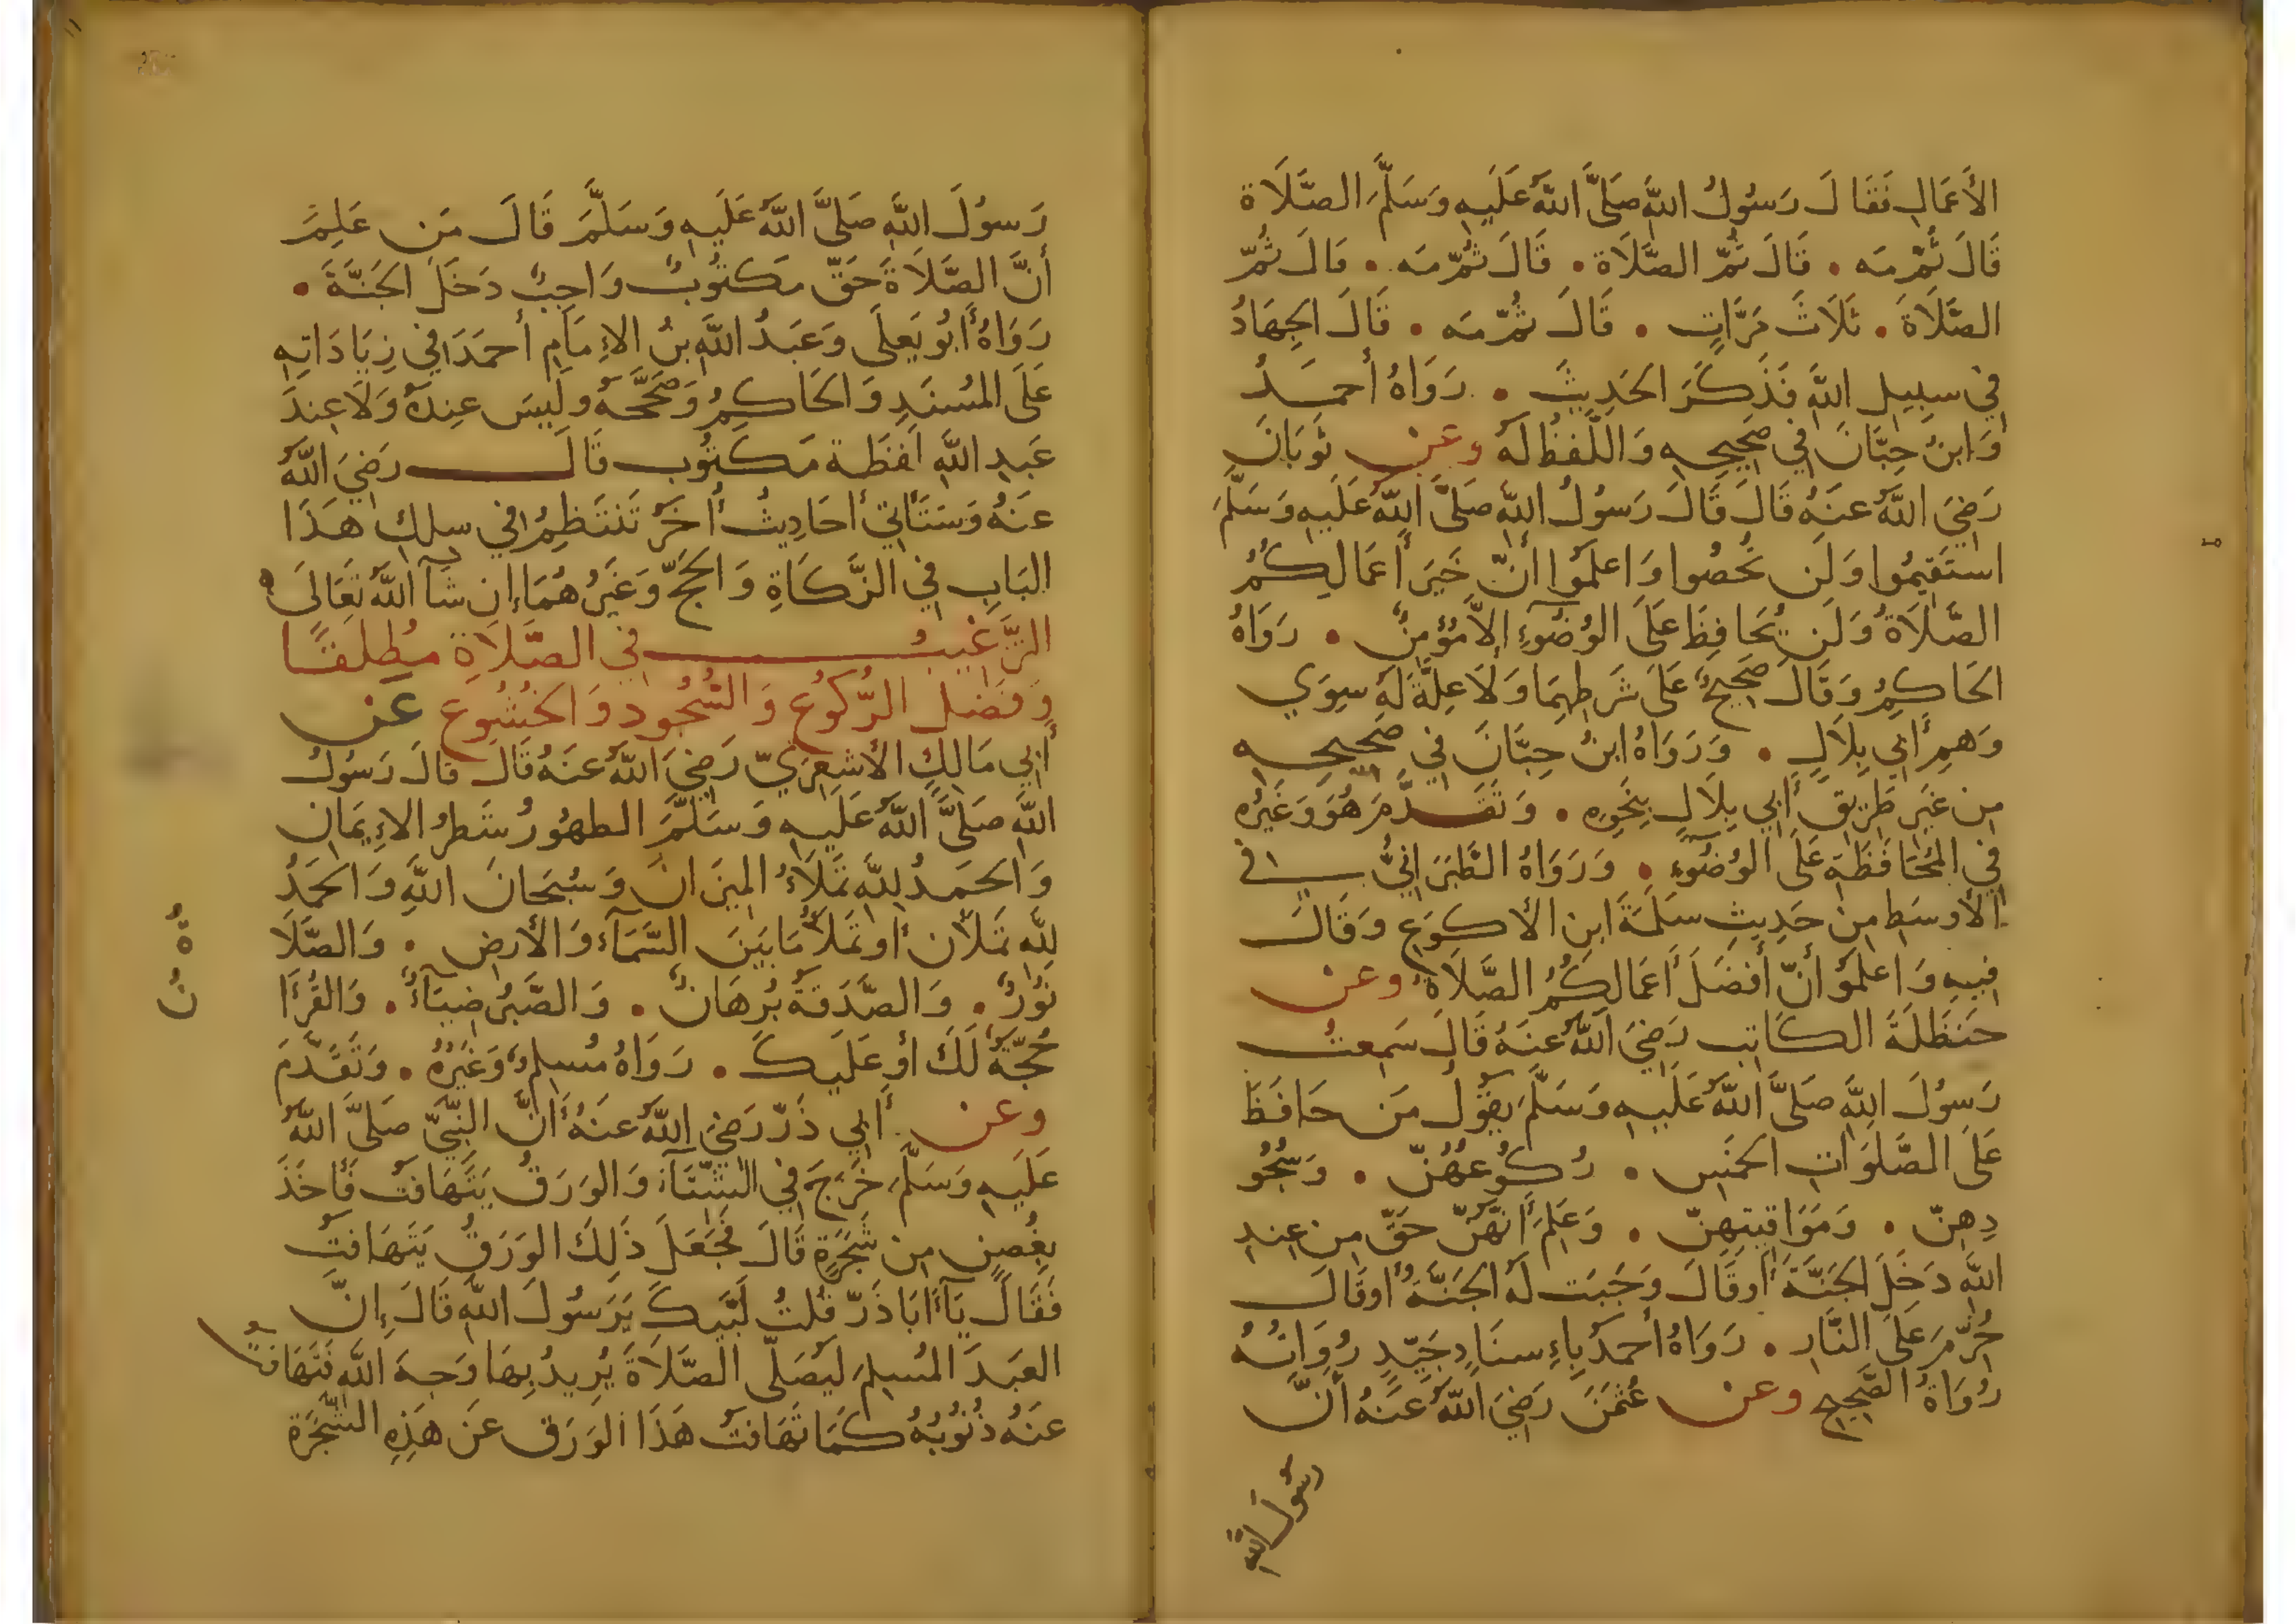 الأَعمَالِ فَقَالَ رَسُولُ اللَّهِ صَلَّى اللَّهُ عَلَيهِ وَسَلَّمَ الصَّلَاة
قَالَ ثُمَّ مَه . قَالَ ثُمّ الصَّلَاة . قَالَ ثُمّ مَه . قَالَ ثُمّ
الصَّلَاةَ . ثَلَاثَ مَرَّاتٍ . قَالَ ثُمّ مَه . قَالَ الجِهَادُ
في سبِيلِ اللَّهِ فَذَكَرَ الحَدِيثَ . رَوَاهُ أحمَدُ
وَابنُ حِبَّانَ في صَحِيحِهِ وَاللَّفظُ لَهُ وعن ثَوبَانَ
رَضِيَ اللَّهُ عنَهُ قَالَ قَالَ رَسُولُ اللَّهِ صَلَّى اللَّهُ عَلَيهِ وَسَلَّمَ
استَقِيمُوا وَلَن تُحصُوا وَاعلَمُوا أَنّ خَيرَ أَعمَالِكُمُ
الصَّلَاةُ وَلَن يُحَافِظَ عَلَى الوُضُوءِ إلاَّ مُؤمِنٌ . رَوَاهُ
الحَاكِمُ وَقَالَ صَحِيحٌ عَلَى شَرطِهِمَا وَلَا عِلَّةَ لَه سِوَي
وَهمِ أَبِي بِلَالٍ . وَرَوَاهُ ابنُ حِبَّانَ فِي صَحِيحِهِ
مِن غَيرِ طَرِيقِ أَبِي بِلَالٍ بِنَحوِه . وَتَقَدَّمَ هُوَ وَغَيرُه
فِي المُحَافَظَةِ عَلَى الوُضُوءِ . وَرَوَاهُ الطَّبَرَانِيُّ فى
الأَوسَطِ مِن حَدِيثِ سَلَمَةَ ابنِ الأَكوَعِ وَقَالَ
فِيهِ وَاعلَمُوا أَنّ أَفضَلَ أَعمَالِكُمُ الصَّلَاةُ وعن
حَنظَلَةَ الكَاتِبِ رَضِيَ اللَّهُ عَنهُ قَالَ سَمِعتُ
رَسُولَ اللَّهِ صَلَّى اللَّهُ عَلَيهِ وَسَلَّمَ يَقُولُ مَن حَافَظَ
عَلَى الصَّلَوَاتِ الخَمسِ . رُكُوعُهُنّ . وَسُجُو
دِهِنّ . وَمَوَاقِيتِهِنّ . وَعَلِمَ أَنَّهُنّ حَقّ مِن عِندِ
اللَّهِ دَخَلَ الجَنَّةَ أَوقَالَ وَجَبَت لَهُ الجَنَّةُ أَوقَالَ
حُرِّمَ عَلَى النَّارِ . رَوَاهُ أحمَدُ بِإِسنَادٍ جَيِّدٍ رُوَاتُهُ
رُوَاةُ الصَّحِيحِ وعن عُثمَنَ رَضِيَ اللَّهُ عَنهُ أَنَّ
رسُولَ اللَّهِ
رَسُولَ اللَّهِ صَلَّى اللَّهُ عَلَيهِ وَسَلَّمَ قَالَ مَن عَلِمَ
أَنَّ الصَّلَاةَ حَقّ مَكتُوبٌ وَاجِبٌ دَخَلَ الجَنَّةَ .
رَوَاهُ أَبُو يَعلَى وَعَبدُ اللَّهِ بنُ الإِمَامِ أَحمَدَ في زِيَادَاتِهِ
عَلَى المُسنَدِ وَالحَاكِمُ وَصَحَّحَهُ وَلَيسَ عِندَهُ وَلَا عِندَ
عَبدِ اللَّهِ لَفظَة مَكتُوب قَالَ رَضِيَ اللَّهُ
عَنهُ وَسَتَأتِي أَحَادِيثُ أُخَرُ تَنتَظِمُ في سِلكِ هَذَا
البَابِ فِي الزَّكَاةِ وَالحَجّ وَغَيرُهُمَا إِن شَآءَ اللَّهُ تَعَالَى
التَّرغِيبُ فِي الصَّلَاةِ مُطلَقًا
وَفَضل الرُّكُوعِ وَالسُّجُودِ وَالخُشُوعِ عَن
أَبِي مَالِكٍ الأَشعَرِيّ رَضِيَ اللَّهُ عَنهُ قَالَ قَالَ رَسُولُ
اللَّهِ صَلَّى اللَّهُ عَلَيهِ وَسَلَّمَ الطهُورُ شَطرُ الإِيمَانِ
وَالحَمدُ لِلَّهِ تَملَأُ المِيزَانَ وَسُبحَانَ اللَّهِ وَالحَمدُ
لِلَّهِ تَملَآنِ أَو تَملَأُ مَا بَينَ السَّمَآءِ وَالأَرضِ . وَالصَّلَا
ةُ
نُورٌ . وَالصَّدَقَةُ بُرهَانٌ . وَالصَّبرُ ضِيَآءٌ . وَالقُرءَا
نُ
حُجّةٌ لَكَ أَو عَلَيكَ . رَوَاهُ مُسلِمٌ وَغَيرُهُ . وَتَقَدَّمَ
وعن أَبِي ذَرّ رَضِيَ اللَّهُ عَنهُ أَنَّ النَّبِيَّ صَلَّى اللَّهُ
عَلَيهِ وَسَلَّمَ خَرَجَ فِي الشِّتَآءِ وَالوَرَقُ يَتَهَافَتُ فَأَخَذَ
بِغُصنٍ مِن شَجَرَةٍ قَالَ فَجَعَلَ ذَلِكَ الوَرَقُ يَتَهَافَتُ
فَقَالَ يَآ أَبَا ذَرّ قُلتُ لَبَّيكَ يَرَسُولَ اللَّهِ قَالَ إِنَّ
العَبدَ المُسلِمَ لَيُصَلّي الصَّلَاةَ يُرِيدُ بِهَا وَجهَ اللَّهِ فَتَهَافَتُ
عَنهُ ذُنُوبُهُ كَمَا تَهَافَتُ هَذَا الوَرَق عَن هَذِهِ الشَّجَرَة